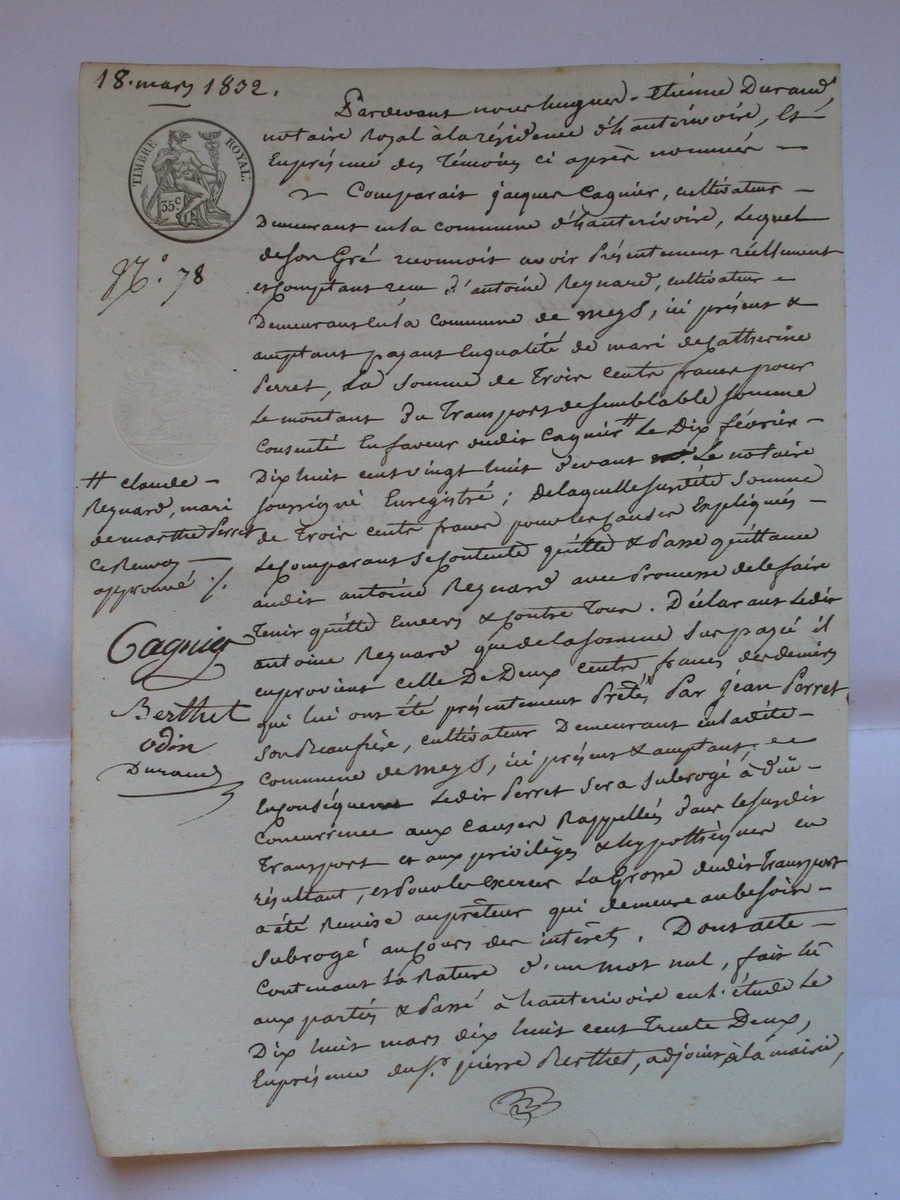 18. mars 1832.
TIMBRE ROYAL.
35 c.
N.° 78
Pardevant nous hugues-Etienne Durand,
notaire Royal à la résidence d'hauterivoire, Et
En présence des Témoins ci après nommés —
Comparait jacques Cagnier, cultivateur —
Demeurant en la commune d'hauterivoire, Lequel
de son Gré reconnoit avoir Présentement réellement
et Comptant reçu d'antoine Reynard, cultivateur
Demeurant en la commune de meys, ici présent &
aceptant payant En qualité de mari de Catherine
Perret, La Somme de Trois Cents francs pour
Le montant du Transport de semblable Somme
Consenti En faveur dudit Cagnier # Le Dix février —
Dix huit cent vingt huit devant Le notaire
soussigné Enregistré ; de laquelle susdite Somme
de Trois cents francs pour les Causes Expliquées —
Le Comparant se Contente quitte & Passe quittance
audit antoine Reynard avec Promesse de le faire
Tenir quitte Envers & Contre Tous. Déclarant Ledit
antoine Reynard que de la somme sus payée il
en provient celle De Deux Cents francs des deniers
qui lui ont été présentement Prêtés Par jean Perret
Son Beaufrère, cultivateur Demeurant en ladite —
Commune de meys, ici présent & aceptant,
En Conséquence Ledit Perret sera subrogé à Dûe —
Concurrence aux Causes Rappellées dans le susdit
Transport et aux privilèges & hypothèques en
résultant, et Pour les Exercer La Grosse dudit Transport
a été Remise au prêteur qui demeure au besoin —
Subrogé au Cours des intérêts. Dont acte —
Contenant La Rature d'un mot nul, fait lû
aux parties & Passé à hauterivoire en l'étude Le
Dix huit mars dix huit cent Trente Deux,
En présence du S.r pierre Berthet, adjoint à la mairie,
# claude —
Reynard, mari
de marthe Perret
Ce Renvoy —
approuvé ./.
Cagnier
Berthet
odin
Durand